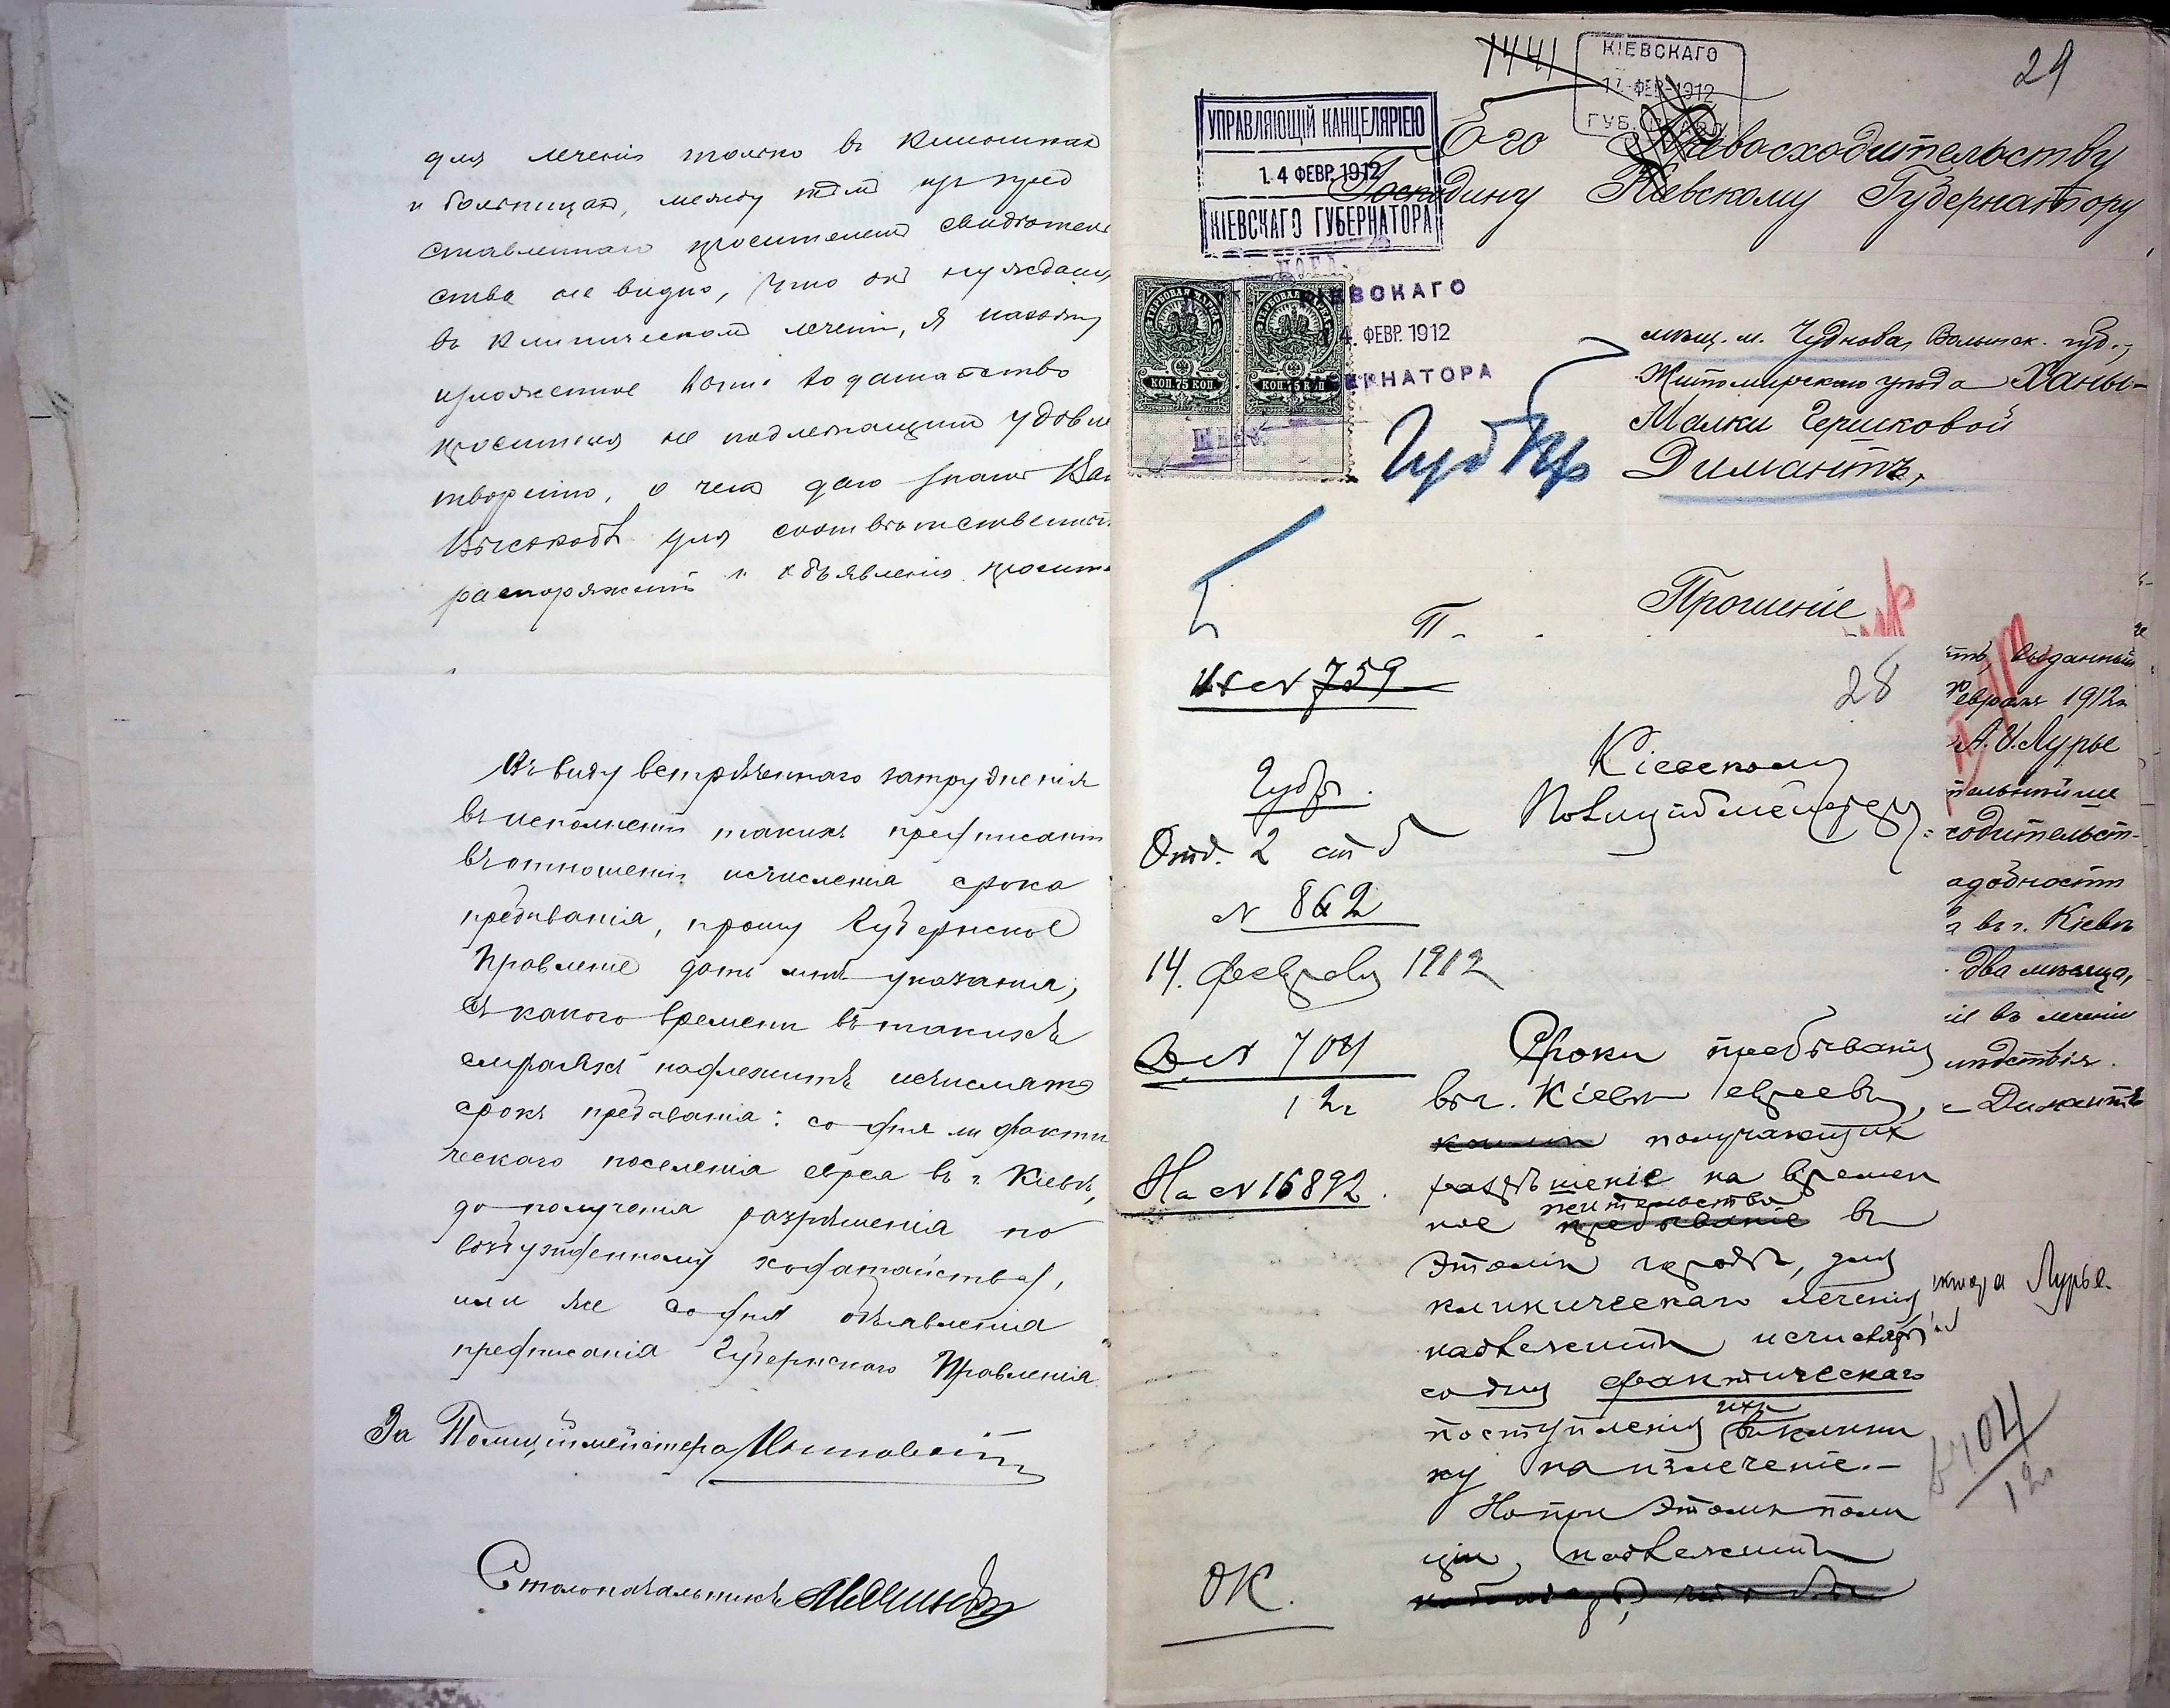 для леченія только въ клиникахъ
и больницахъ, между тѣмъ изъ пред
ставленнаго просителемъ свидѣтель
ства не видно, что онъ нуждался
въ клиническомъ леченіи, я нахожу
изложенное ходатайство
просителя не подлежащимъ удовле
творенію, о чемъ даю знать Ва
Высокоб. для соотвѣтственнаго
распоряженія и объявленія просит
Въ виду встрѣченнаго затрудненія
въ исполненіи такихъ предписаній
въ отношеніи исчисленія срока
пребыванія, прошу Губернское
Правленіе дать мнѣ указанія,
съ какого времени въ такихъ
случаяхъ надлежитъ исчислять
срокъ пребыванія: со дня ли факти
ческаго поселенія еврея въ г. Кіевѣ,
до полученія разрѣшенія по
возбужденному ходатайству,
или же со дня объявленія
предписанія Губернскаго Правленія.
За Полиціймейстера
Столоначальникъ
1441
КІЕВСКАГО
17 ФЕВ 1912
ГУБ. ПРАВЛ.
29
УПРАВЛЯЮЩІЙ КАНЦЕЛЯРІЕЮ
14 ФЕВР. 1912
КІЕВСКАГО ГУБЕРНАТОРА
Его Превосходительству
Господину Кіевскому Губернатору
КІЕВСКАГО
14. ФЕВР. 1912
ГУБЕРНАТОРА
ГЕРБОВАЯ МАРКА
КОП. 75 КОП.
ГЕРБОВАЯ МАРКА
КОП. 75 КОП.
мѣщ. м. Чуднова, Волынск. губ.,
Житомирскаго уѣзда Ханы-
Малки Гершковой
Димантъ,
Губ Пр
Прошеніе
П.
№ 759
28
Губ.
Отд. 2 ст 5
№ 862
14. февраля 1912
Д. № 704
12 г
На № 16892.
ОК.
Кіевскому
Полиціймейстеру.
Сроки пребыванія
въ г. Кіевѣ евреевъ,
получающихъ
разрѣшеніе на времен
жительство
ное пребываніе въ
этомъ городѣ, для
клиническаго леченія
надлежитъ исчислять
со дня фактическаго
ихъ
поступленія въ клини
ку на излеченіе.-
Но при этомъ поли
ціи, надлежитъ
выданный
евраля 1912 г
А. И. Лурье
нѣйше
ходительст-
адобности
въ г. Кіевѣ
два мѣсяца,
въ леченіи
Димантъ
Лурье.
704
12 г